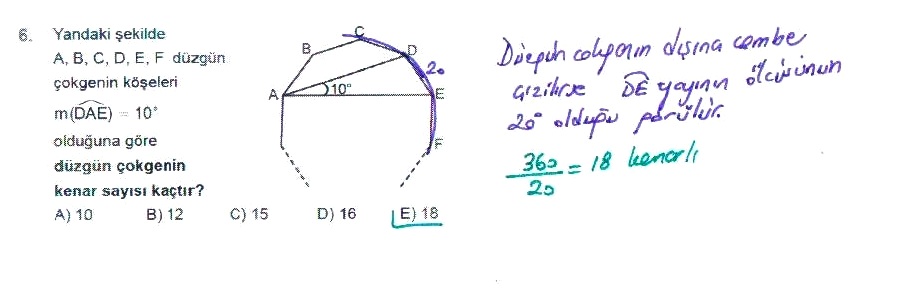 6. Yandaki şekilde
A, B, C, D, E, F düzgün
çokgenin köşeleri
m(DAE) = 10°
olduğuna göre
düzgün çokgenin
kenar sayısı kaçtır?
A) 10 B) 12 C) 15 D) 16 E) 18
C
B
D
20
A
10°
E
F
Düzgün çokgenin dışına çembe
çizilirse DE yayının ölçüsünün
20° olduğu görülür.
360/20 = 18 kenarlı